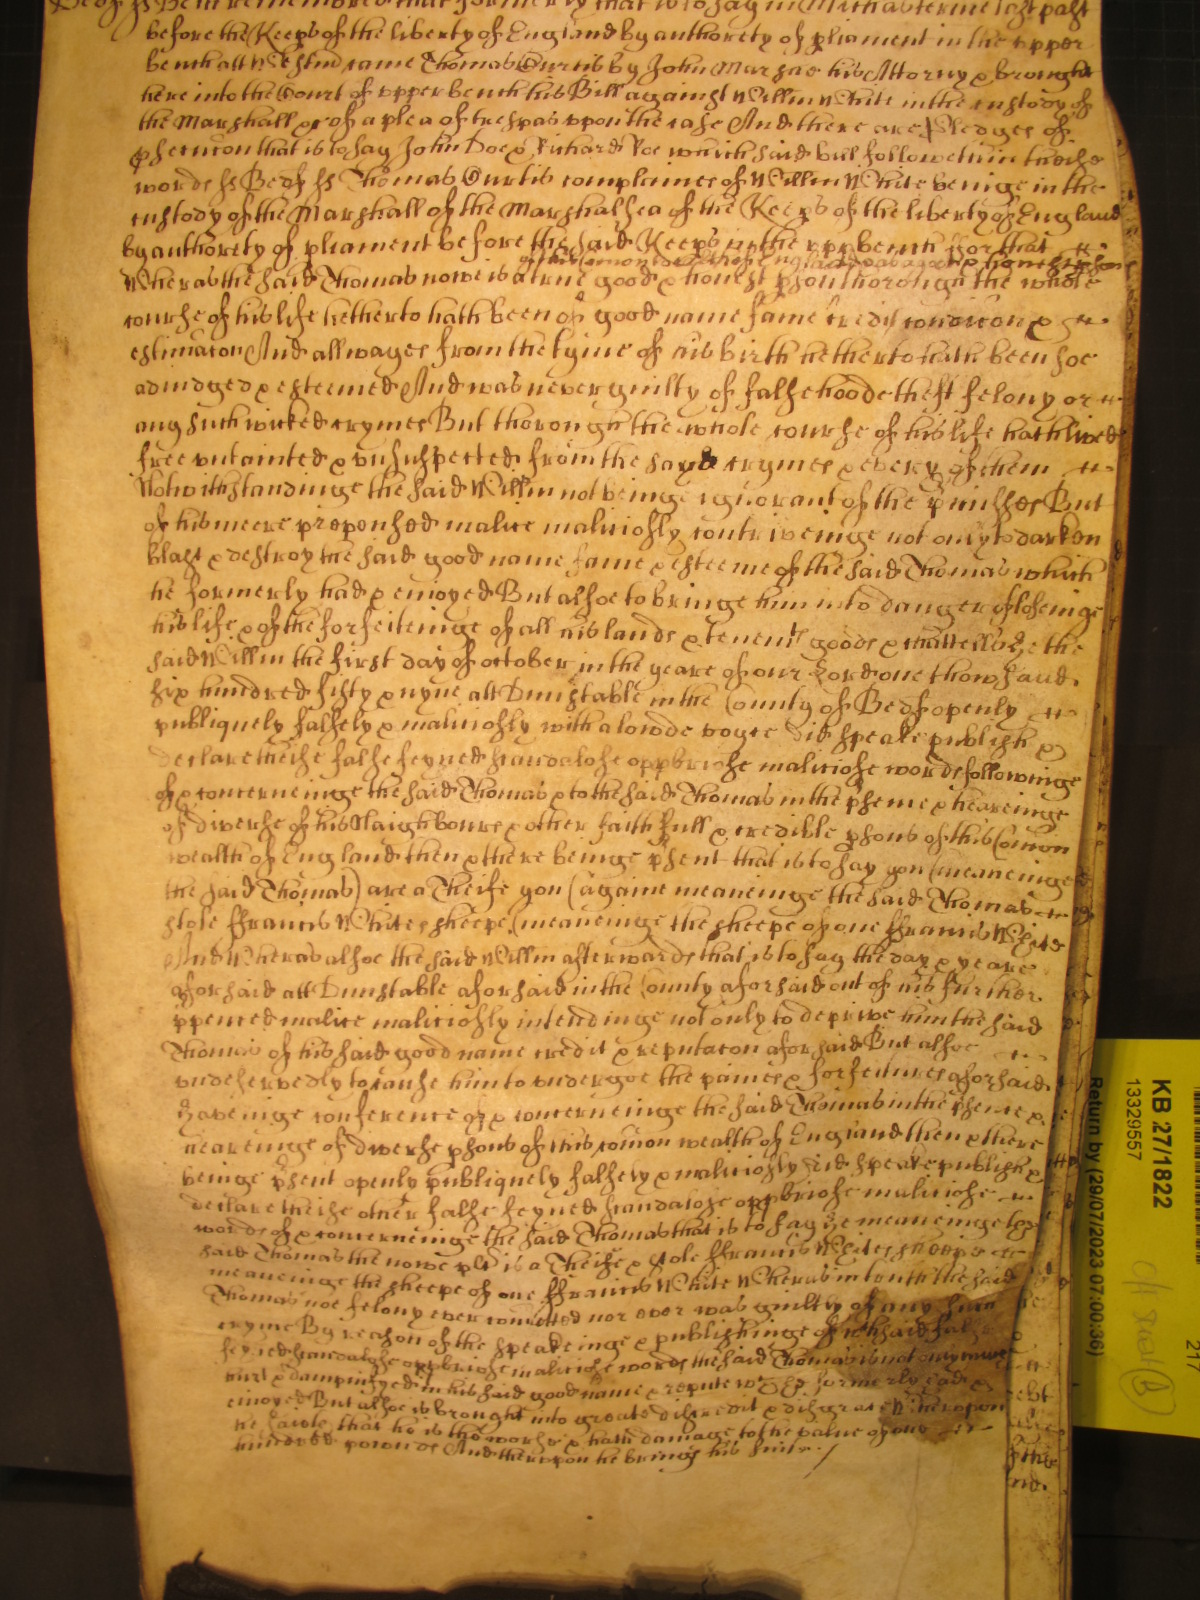 Bedf ss Be it remembred that formerly that is to say in Mich'as terme last past
before the Keep's of the liberty of England by authorety of p'liament in the upper
bench att Westm' came Thomas Curtis by John Marsae his Attorny & brought
here into the Court of upper bench his Bill against Will'm White in the custody of
the Marshall &c of a plea of trespas upon the case And there are Pledges of
p'secucon that is to say John Doe & Richard Roe which said bill followeth in theise
words ss Bedf ss Thomas Curtis complaines of Will'm White beinge in the
custody of the Marshall of the Marshalsea of the Keep's of the liberty of England
by authorety of p'liament before the said Keep's in the upp' bench For that
of this Comonwealth of England
Wheras the said Thomas nowe is a true good & honest p'son thorough the whole
course of his life hetherto hath been of good name fame credit condicon &
estimacon And allwayes from the tyme of his birth hetherto hath been soe
adiudged & esteemed And was never guilty of falsehoode theft felony or
any such wicked crymes But thorough the whole course of his life hath lived
free untainted & unsuspected from the sayd crymes & every of them
Notwithstandinge the said Will'm not beinge ignorant of the p'misses But
of his meere preponsed malice malitiosly contriveinge not only to darken
blast & destroy the said good name fame & esteeme of the said Thomas which
he formerly had & enioyed But alsoe to bringe him into danger of loseinge
his life & of the forfeiteinge of all his lands & tenem'ts goods & chattells He the
said Will'm the first day of october in the yeare of our Lord one thowsand
six hundred fifty & nyne att Dunstable in the County of Bedf openly
publiquely falsely & malitiosly with a lowde voyce did speake publish &
declare theise false feyned scandalose opprobriose malitiose words followinge
of & concerneinge the said Thomas & to the said Thomas in the p'sence & heareinge
of diverse of his Naighboures & other faithfull & credible p'sons of this Comon
wealth of England then & there beinge p'sent that is to say you (meaneinge
the said Thomas) are a Theife you (againe meaneinge the said Thomas
stole ffrancis Whites sheepe (meaneinge the sheepe of one ffrancis White
And Wheras alsoe the said Will'm afterwards that is to say the day & yeare
aforsaid att Dunstable aforsaid in the County aforsaid out of his further
p'pensed malice malitiosly intendinge not only to deprive him the said
Thomas of his said good name credit & reputacon aforsaid But alsoe
undeservedly to cause him to undergoe the paines & forfeitures aforsaid
Haveinge conference of & concerneinge the said Thomas in the p'sence &
heareinge of diverse p'sons of this comon wealth of England then & there
beinge p'sent openly publiquely falsely & malitiosly did speake publish &
declare theise other false feyned scandalose opprobriose malitiose
words of & concerneinge the said Thomas that is to say He meaneinge the
said Thomas the nowe plt is a Theife & stole ffrancis Whites sheepe
meaneinge the sheepe of one ffrancis White Wheras in truth the said
Thomas noe felony ever comitted nor ever was guilty of any such
cryme By reason of the speakeinge & publishinge of wch said false
feyned scandalose opprobriose malitiose words the said Thomas is not only much
hurt & dampnifyed in his said good name & repute wch he formerly had &
enioyed But alsoe is brought into greate discredit & disgrace Wherupon
he saith that he is the worse & hath damage to the value of one
hundred pownds And therupon he brings his suite
KB 27/1822
13329557
Return by (29/07/2023 07:00:36)
217